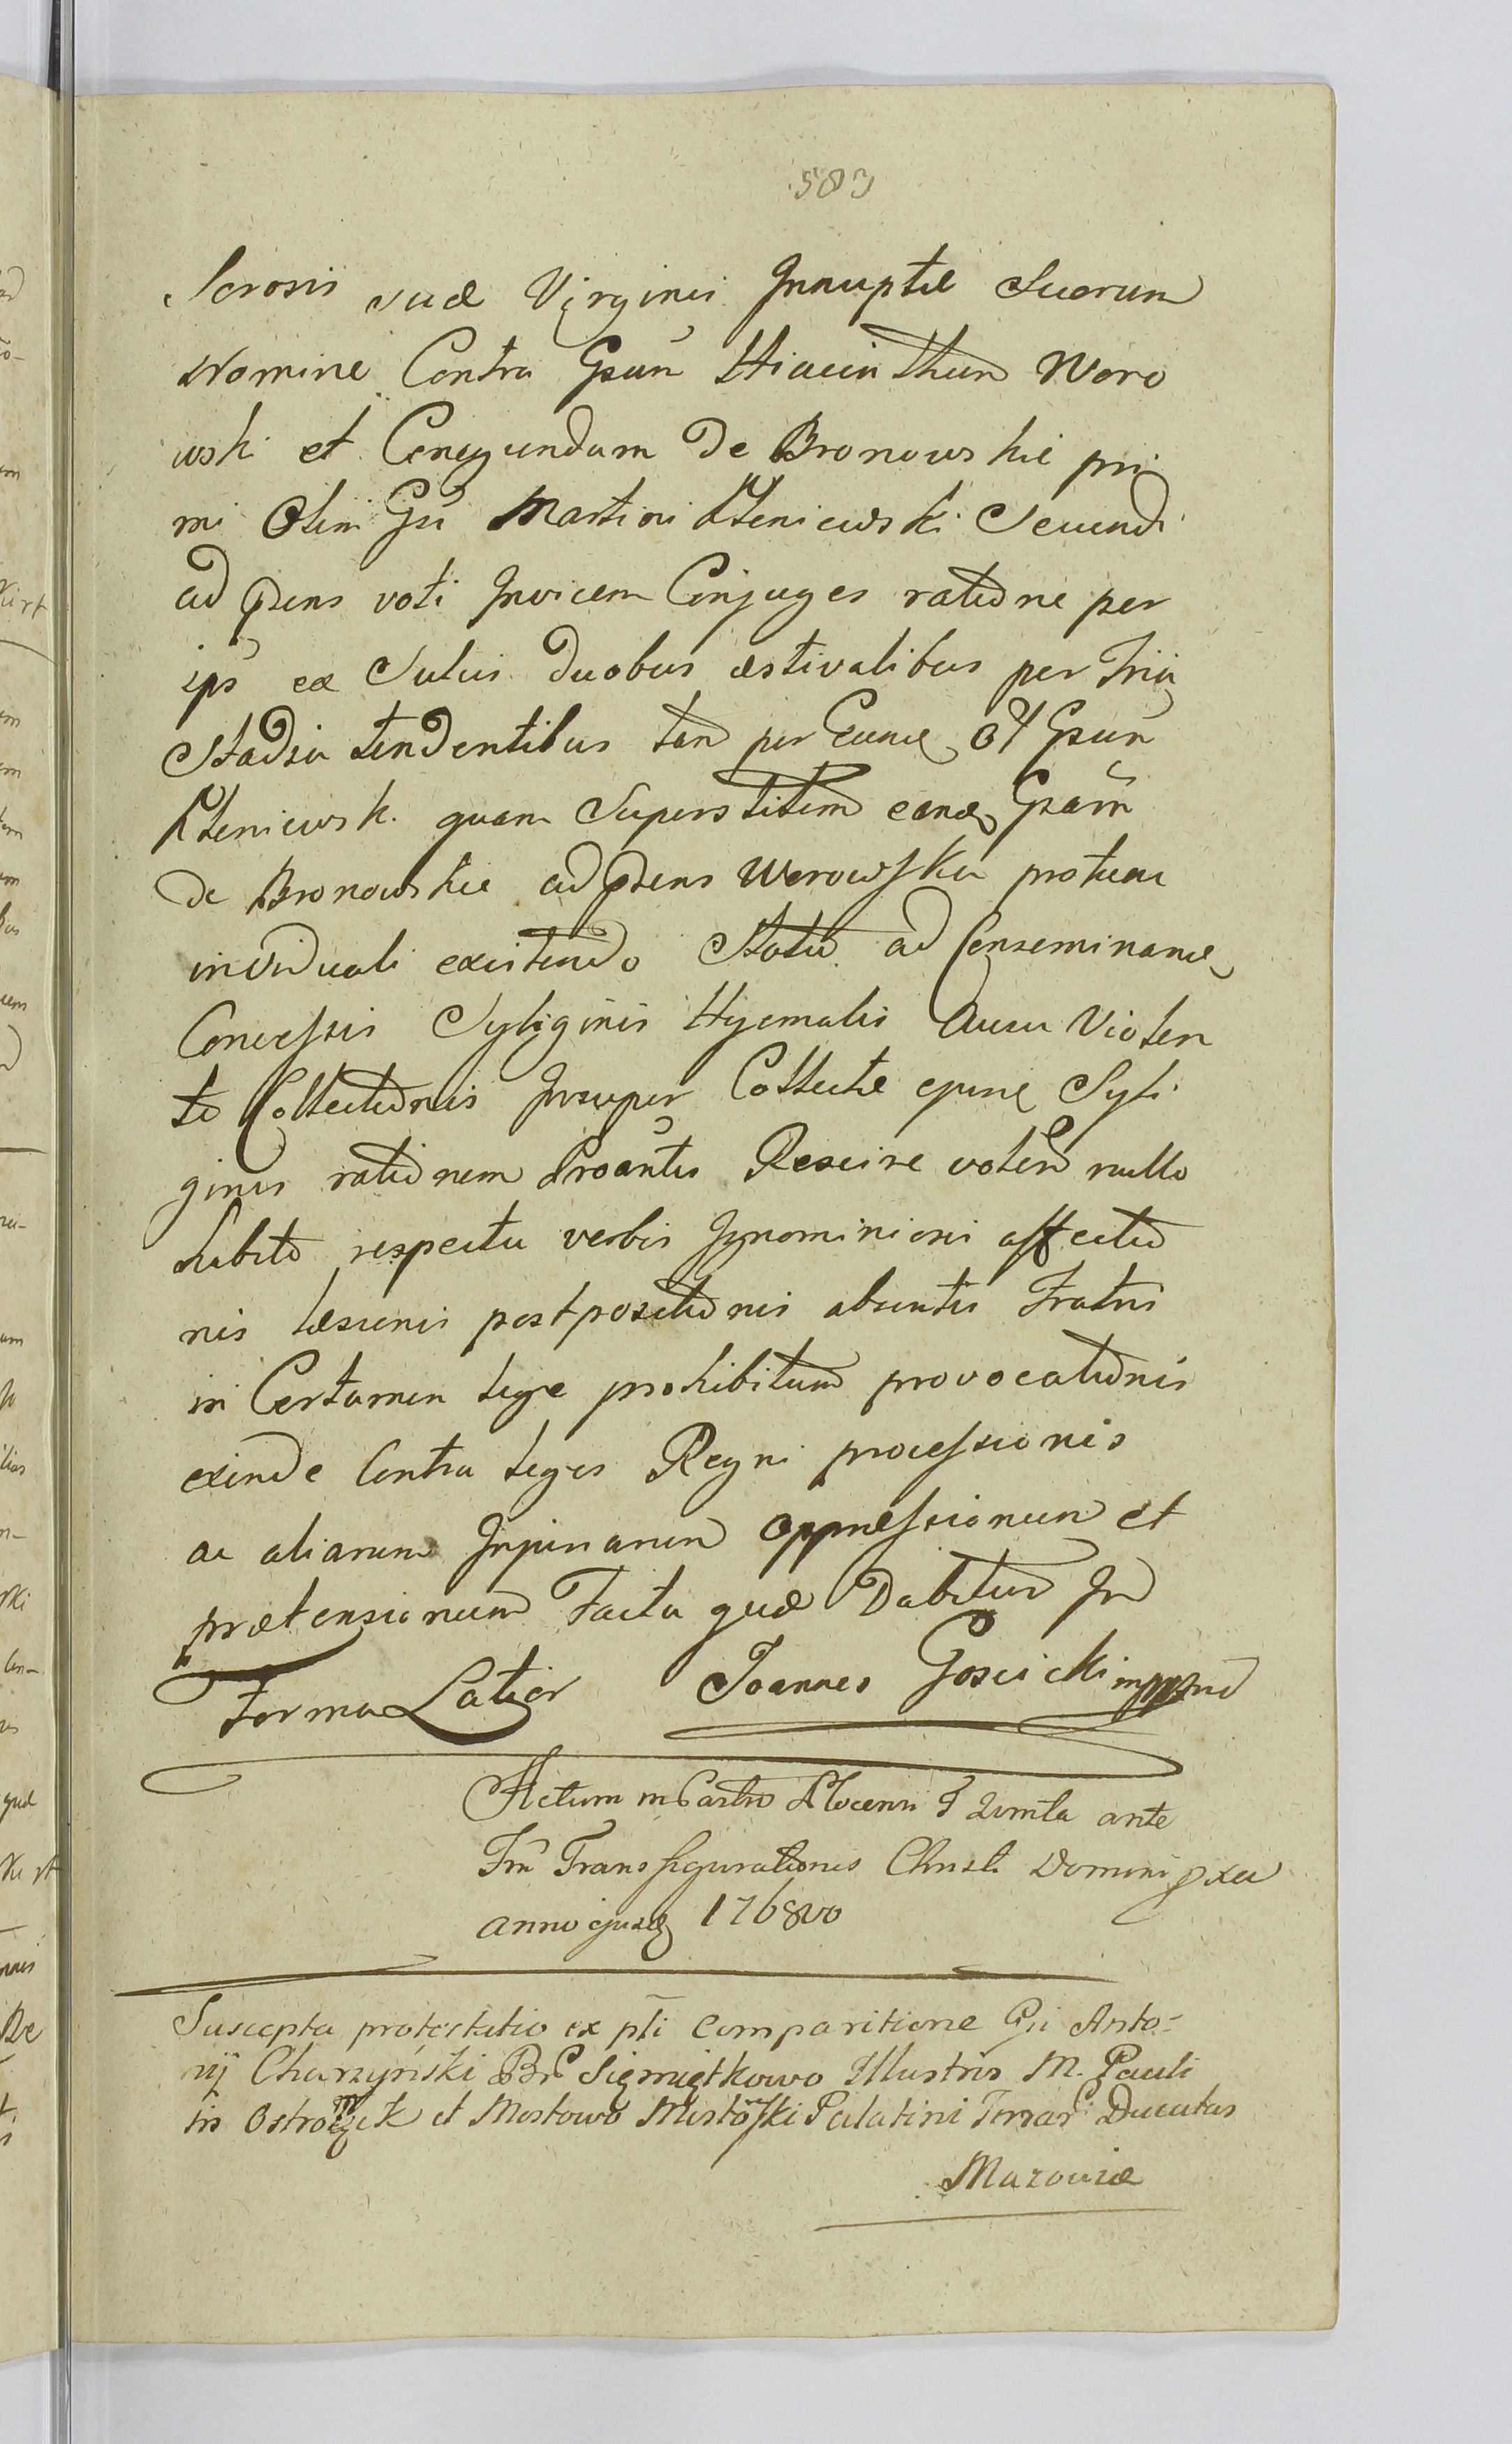 583
Sorosis suæ Virginis Innuptæ Suorum
Nomine Contra Gsum Hiacinthum Woro
wski et Cunegundam De Bronowskie pri
mi Olim Gsi Martini Kteniewski Secundi
ad psens voti Invicem Conjuges ratione per
ips ex Sulcis Duobus æstivalibus per Tria
Stadia tendentibus tam per Eunde Ol Gsum
Kteniewsk. quam Superstitem eande Gsam
de Bronowskie ad psens Worowska protunc
individuali existendo Statu ad Conseminand
Concessis Syliginis Hyemalis Ausu Violen
to Collectionis Insuper Collectæ ejusde Syli
ginis rationem Protantis Rescire volen nullo
habito respectu verbis Ignominiosis affectio
nis læsionis postpositionis absentis Fratris
in Certamen lege prohibitum provocationis
exinde Contra leges Regni processionis
ac aliarum Injuriarum Oppressionum et
prætensionum Facta quæ Dabitur In
Forma Latior Joannes Goscicki mppria
Actum in Castro Plocensi F Quinta ante
Fm Transfigurationis Christi Domini pxa
anno ejusd 1768vo
Suscepta protestatio ex pti Comparitione Gsi Anto-
nij Charzyński Br Siemiątkowo Illustris M. Pauli
in Ostrożęk et Mostowo Mostowski Palatini Terrar Ducatus
Mazoviæ